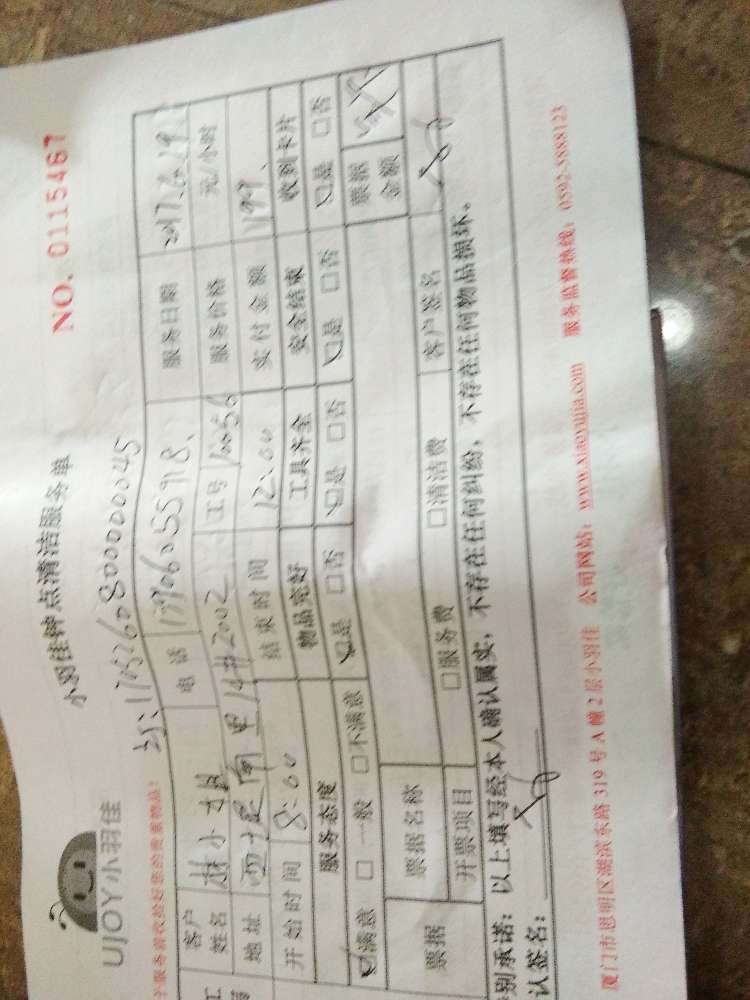 UJOY小羽佳
小羽佳钟点清洁服务单
NO. 0115467
服务前收拾好您的贵重物品!
17052608000000045
客户姓名 林小姐 电话 服务日期
地址 14#2002 工号 服务价格 元/小时
开始时间 8:00 结束时间 12:00 实付金额 199
服务态度 物品完好 工具齐全 安全结束 收到卡片
☑满意 □一般 □不满意 ☑是 □否 ☑是 □否 ☑是 □否 ☑是 □否
票据 票据名称 票据金额
开票项目 □服务费 □清洁费 客户签名
别承诺:以上填写经本人确认属实,不存在任何纠纷,不存在任何物品损坏。
认签名:
厦门市思明区湖滨东路319号A幢2层小羽佳 公司网站:www.xiaoyujia.com 服务监督热线:0592-5888123